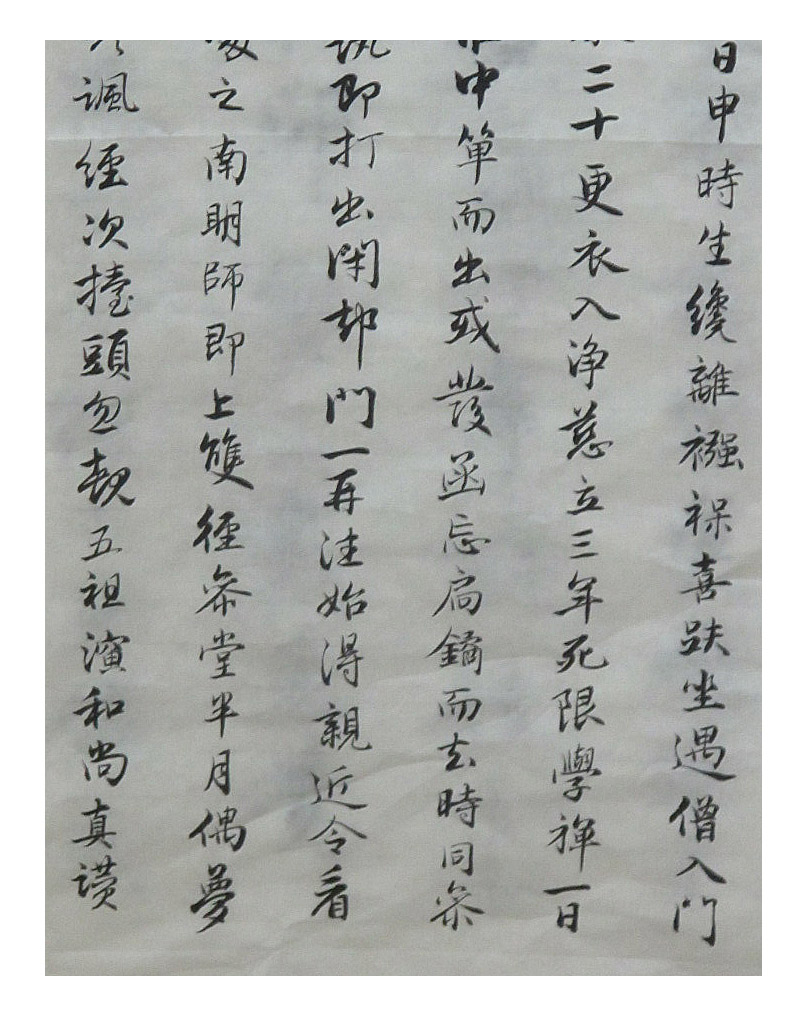 日申時生纔離襁褓喜趺坐遇僧入門
二十更衣入淨慈立三年死限學禪一日
中單而出或發函忘扃鐍而去時同叅
即打出閉却門一再往始得親近令看
之南明師即上雙徑叅堂半月偶夢
諷經次擡頭忽覩五祖演和尚真讚